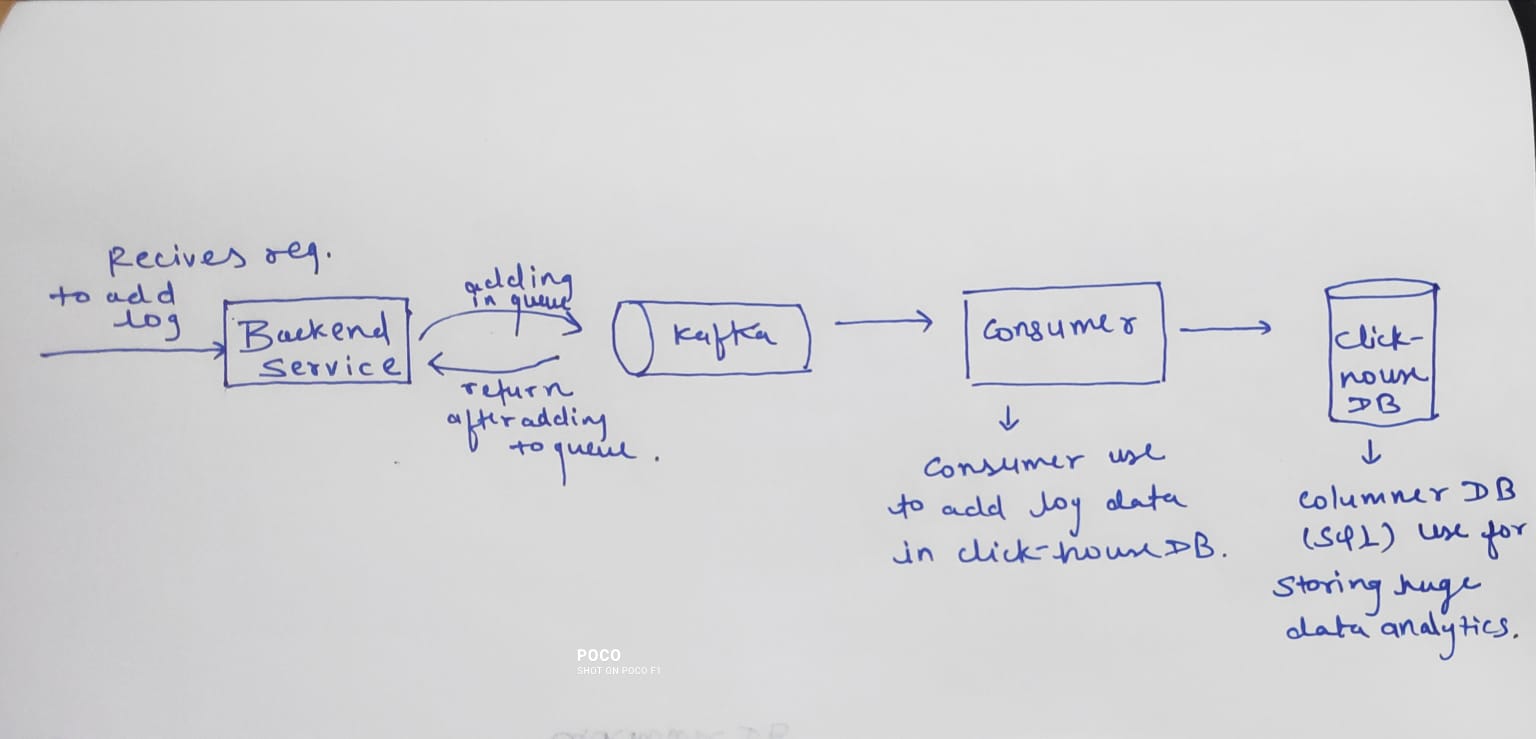 Recives req.
to add
log
Backend
service
adding
in queue
return
after adding
to queue.
Kafka
consumer
consumer use
to add log data
in click-house DB.
click-
house
DB
columner DB
(SQL) use for
storing huge
data analytics.
POCO
SHOT ON POCO F1